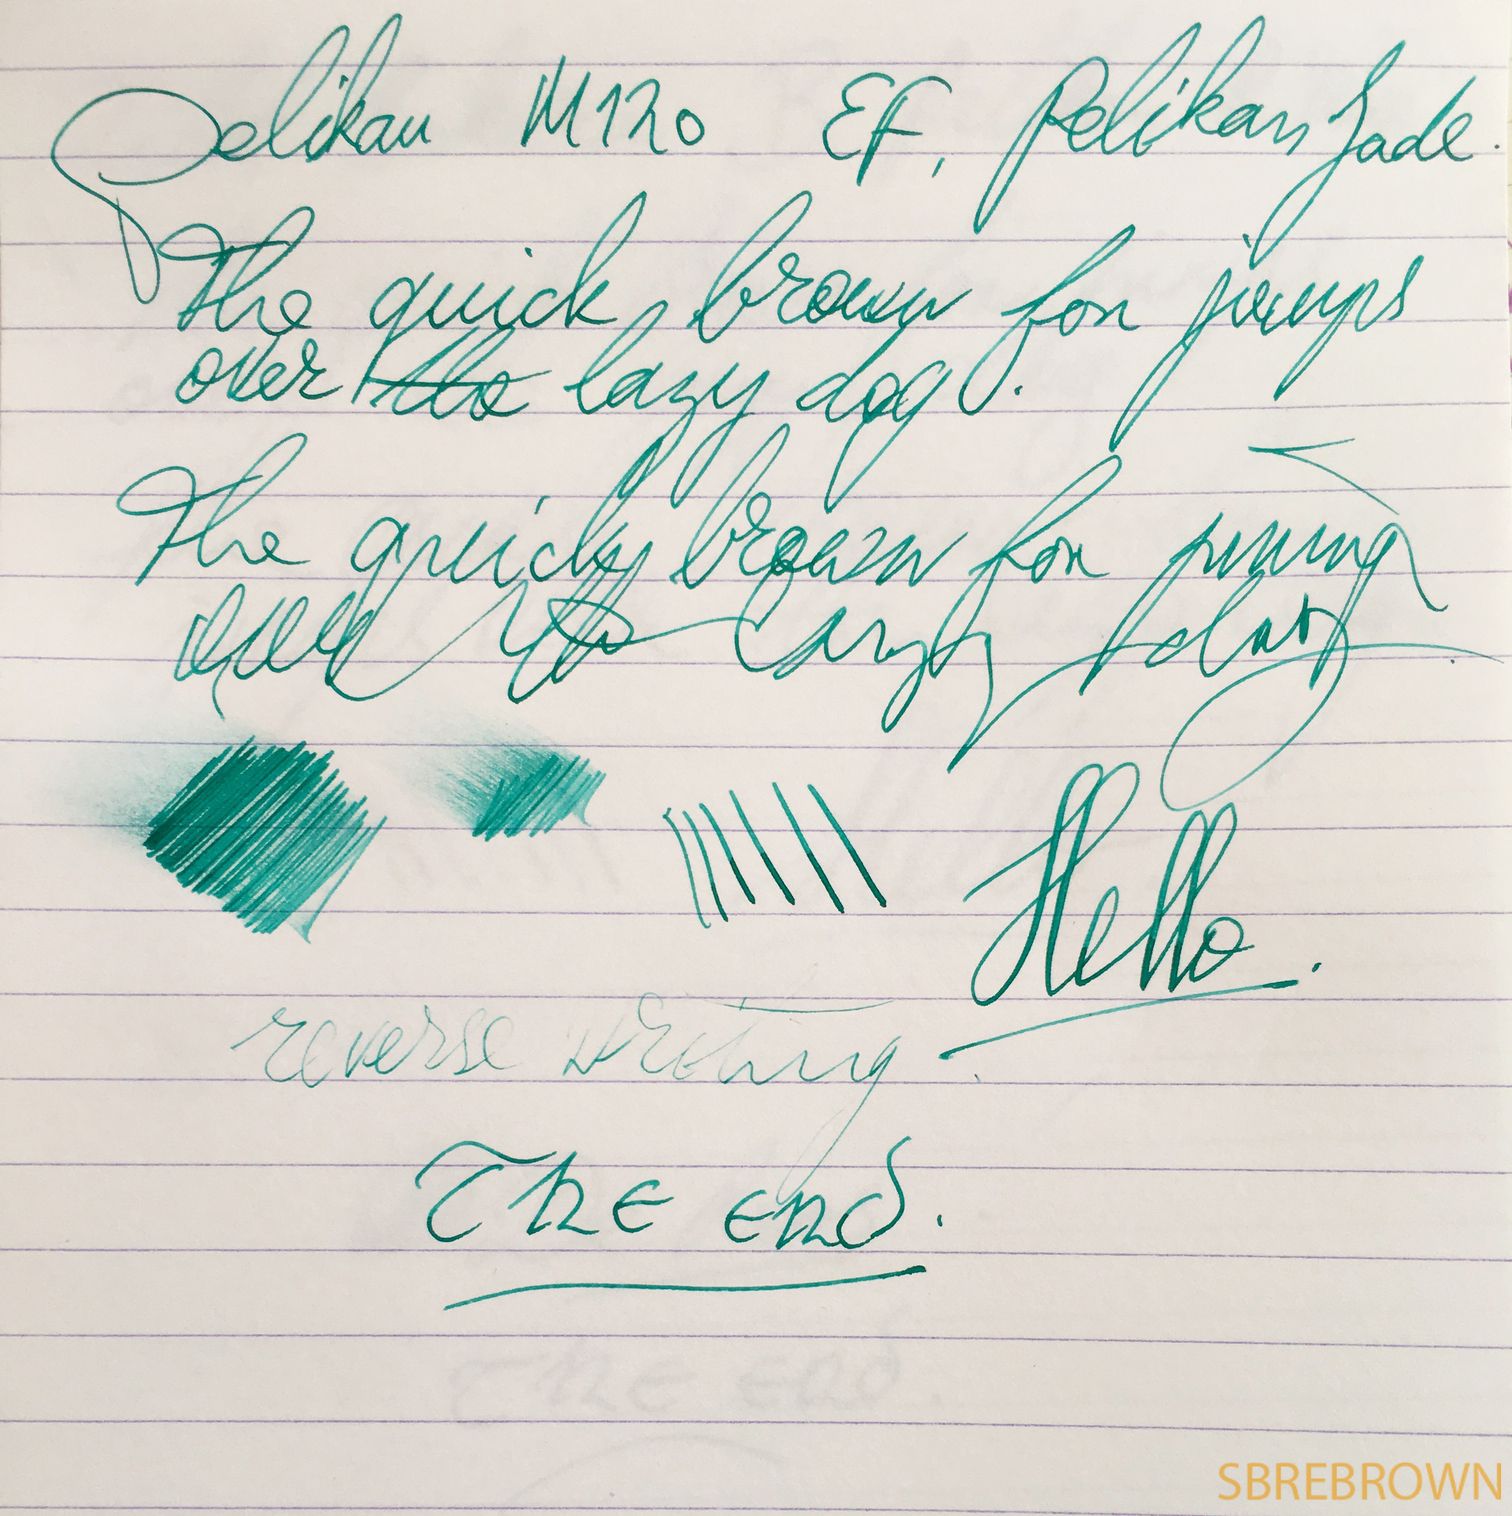 Pelikan M120 EF, Pelikan Jade.
The quick brown fox jumps
over the lazy dog.
The quick brown fox jump
over the lazy
Hello.
reverse writing.
The end.
SBREBROWN